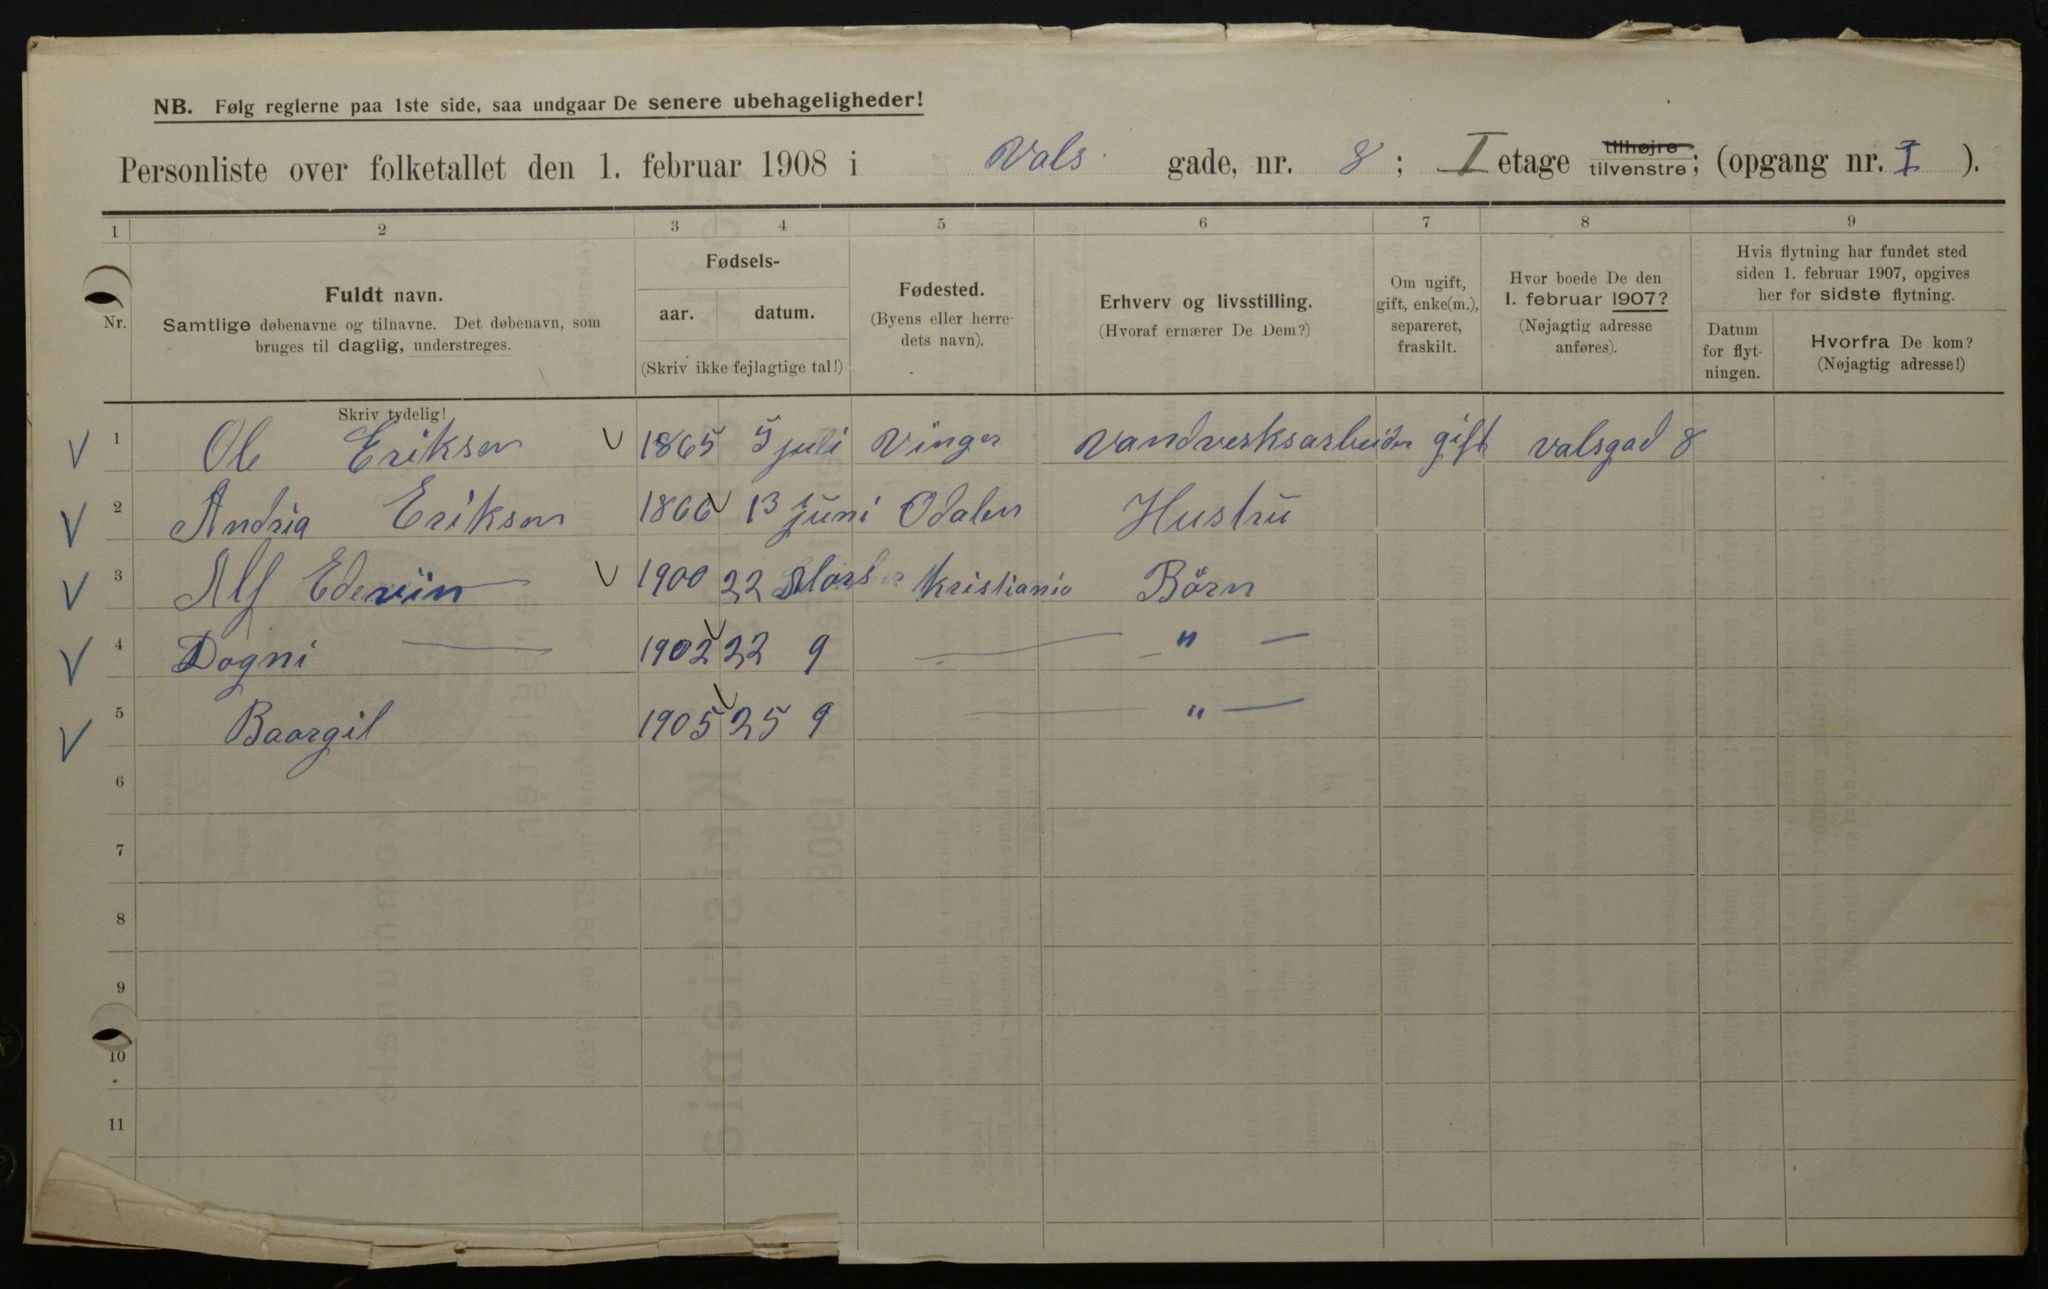 NB. Følg reglerne paa 1ste side, saa undgaar De senere ubehageligheder!
Personliste over folketallet den 1. februar 1908 i Vals gade, nr. 8; I etage tilhøjre tilvenstre; (opgang nr. I ).
1 2 3 4 5 6 7 8 9
Nr.
Fuldt navn.
Samtlige døbenavne og tilnavne. Det døbenavn, som
bruges til daglig, understreges.
Skriv tydelig!
Fødsels-
aar. datum.
(Skriv ikke fejlagtige tal!)
Fødested.
(Byens eller herre-
dets navn).
Erhverv og livsstilling.
(Hvoraf ernærer De Dem?)
Om ugift,
gift, enke(m.),
separeret,
fraskilt.
Hvor boede De den
1. februar 1907?
(Nøjagtig adresse
anføres).
Hvis flytning har fundet sted
siden 1. februar 1907, opgives
her for sidste flytning.
Datum
for flyt-
ningen.
Hvorfra De kom?
(Nøjagtig adresse!)
1 Ole Eriksen 1865 5 juli Vinger Vandverksarbeider gift Valsgad 8
2 Andria Eriksen 1866 13 juni Odalen Hustru
3 Alf Edevin — 1900 22 Kristiania Börn
4 Dagni — 1902 22 9 — — " —
5 Baargil 1905 25 9 — " —
6
7
8
9
10
11